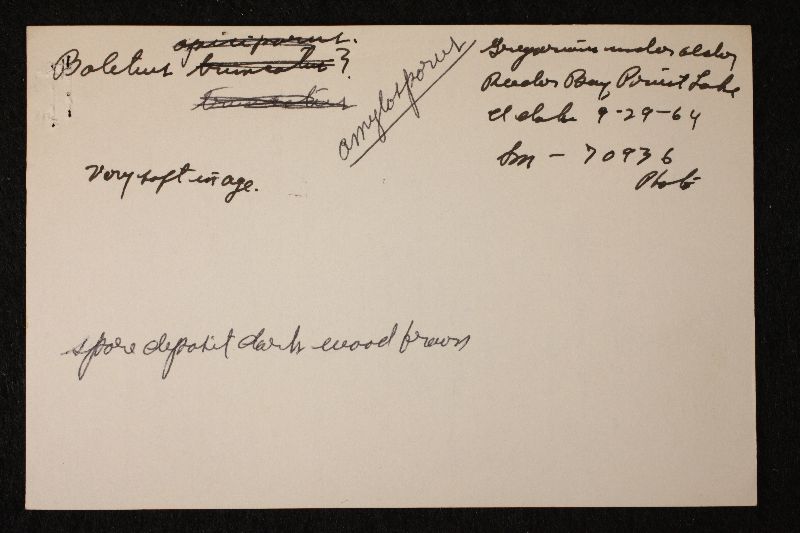 Boletus truncatus?
apiciporus.
truncatus
amylosporus
Gregarious under alder
Reeder Bay, Priest Lake
Idaho 9-29-64
Sm - 70936
Photo
Very soft in age.
spore deposit dark wood brown